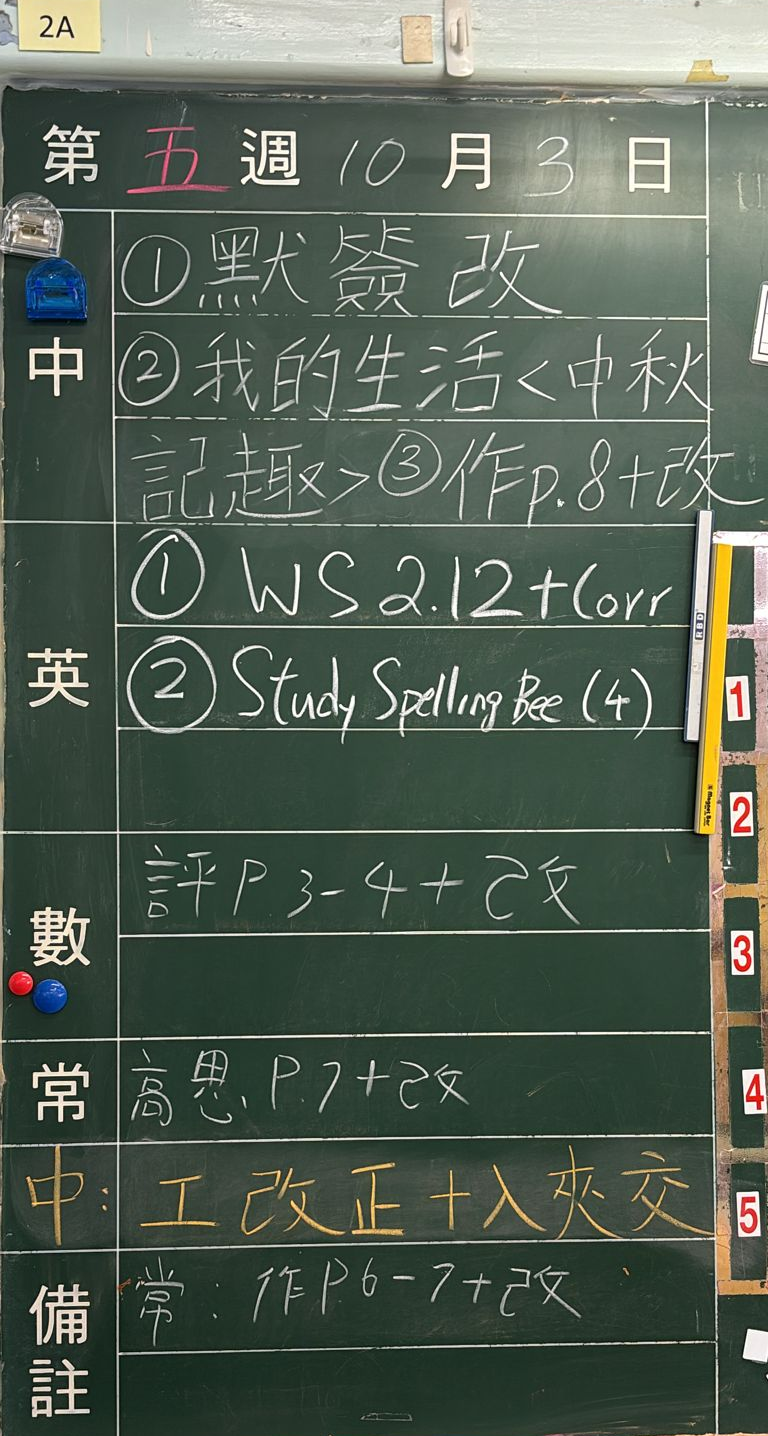 2A
第五週10月3日
中
①默簽改
②我的生活<中秋
記趣>③作p.8+改
英
① WS 2.12+Corr
② Study Spelling Bee (4)
數
評P 3-4+改
常
高思 P.7+改
中: 工改正+入夾交
備註
常: 作P.6-7+改
1
2
3
4
5